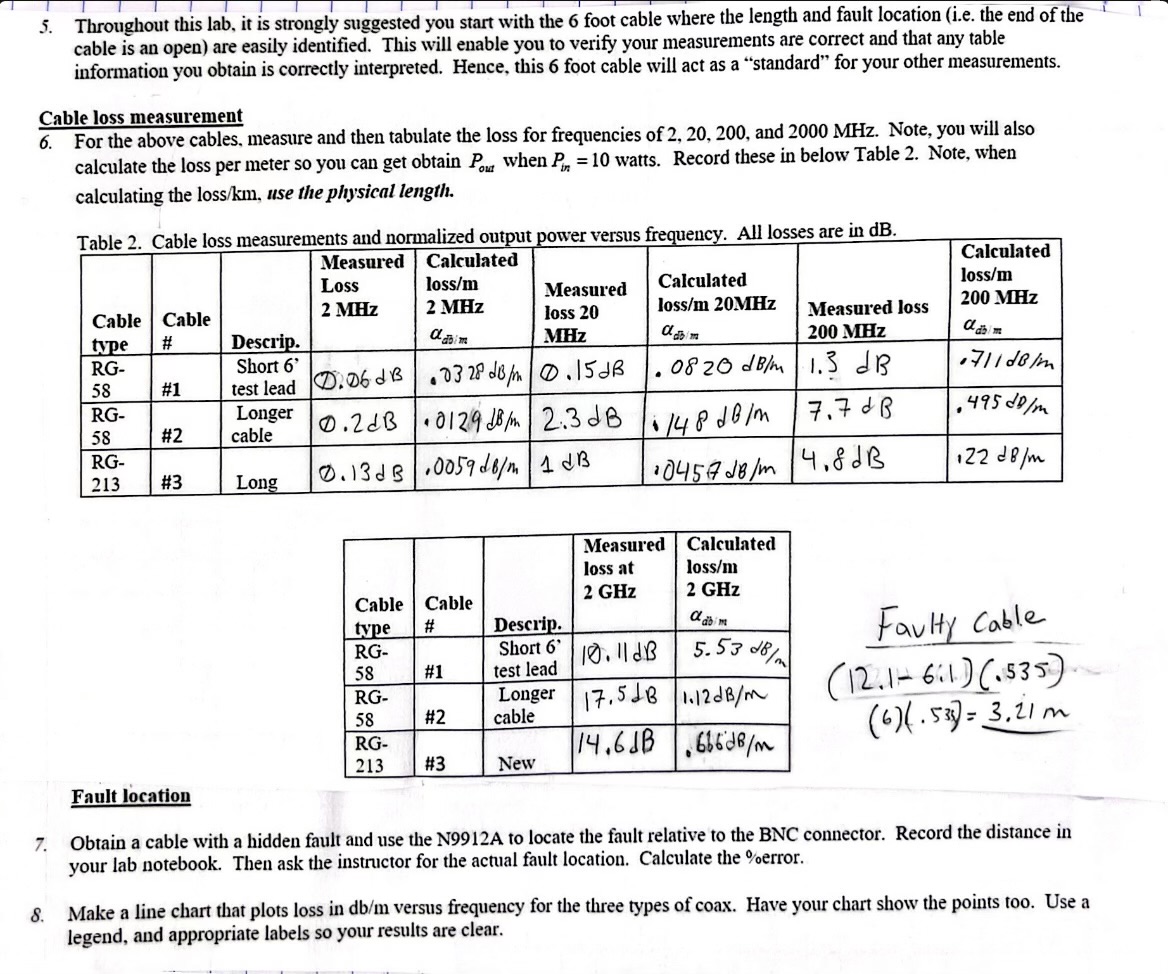 5. Throughout this lab, it is strongly suggested you start with the 6 foot cable where the length and fault location (i.e. the end of the
cable is an open) are easily identified. This will enable you to verify your measurements are correct and that any table
information you obtain is correctly interpreted. Hence, this 6 foot cable will act as a “standard” for your other measurements.
Cable loss measurement
6. For the above cables, measure and then tabulate the loss for frequencies of 2, 20, 200, and 2000 MHz. Note, you will also
calculate the loss per meter so you can get obtain P_out when P_in = 10 watts. Record these in below Table 2. Note, when
calculating the loss/km, use the physical length.
Table 2. Cable loss measurements and normalized output power versus frequency. All losses are in dB.
Cable type | Cable # | Descrip. | Measured Loss 2 MHz | Calculated loss/m 2 MHz α_db/m | Measured loss 20 MHz | Calculated loss/m 20MHz α_db/m | Measured loss 200 MHz | Calculated loss/m 200 MHz α_db/m
RG-58 | #1 | Short 6' test lead | 0.06 dB | .0328 dB/m | 0.15dB | .0820 dB/m | 1.3 dB | .711 dB/m
RG-58 | #2 | Longer cable | 0.2dB | .0129 dB/m | 2.3 dB | .148 dB/m | 7.7 dB | .495 dB/m
RG-213 | #3 | Long | 0.13dB | .0059 dB/m | 1 dB | .0457 dB/m | 4.8dB | .22 dB/m
Cable type | Cable # | Descrip. | Measured loss at 2 GHz | Calculated loss/m 2 GHz α_db/m
RG-58 | #1 | Short 6' test lead | 10.11dB | 5.53 dB/m
RG-58 | #2 | Longer cable | 17.5dB | 1.12dB/m
RG-213 | #3 | New | 14.6dB | .666dB/m
Faulty Cable
(12.1-6.1)(.535)
(6)(.535)= 3.21 m
Fault location
7. Obtain a cable with a hidden fault and use the N9912A to locate the fault relative to the BNC connector. Record the distance in
your lab notebook. Then ask the instructor for the actual fault location. Calculate the %error.
8. Make a line chart that plots loss in db/m versus frequency for the three types of coax. Have your chart show the points too. Use a
legend, and appropriate labels so your results are clear.